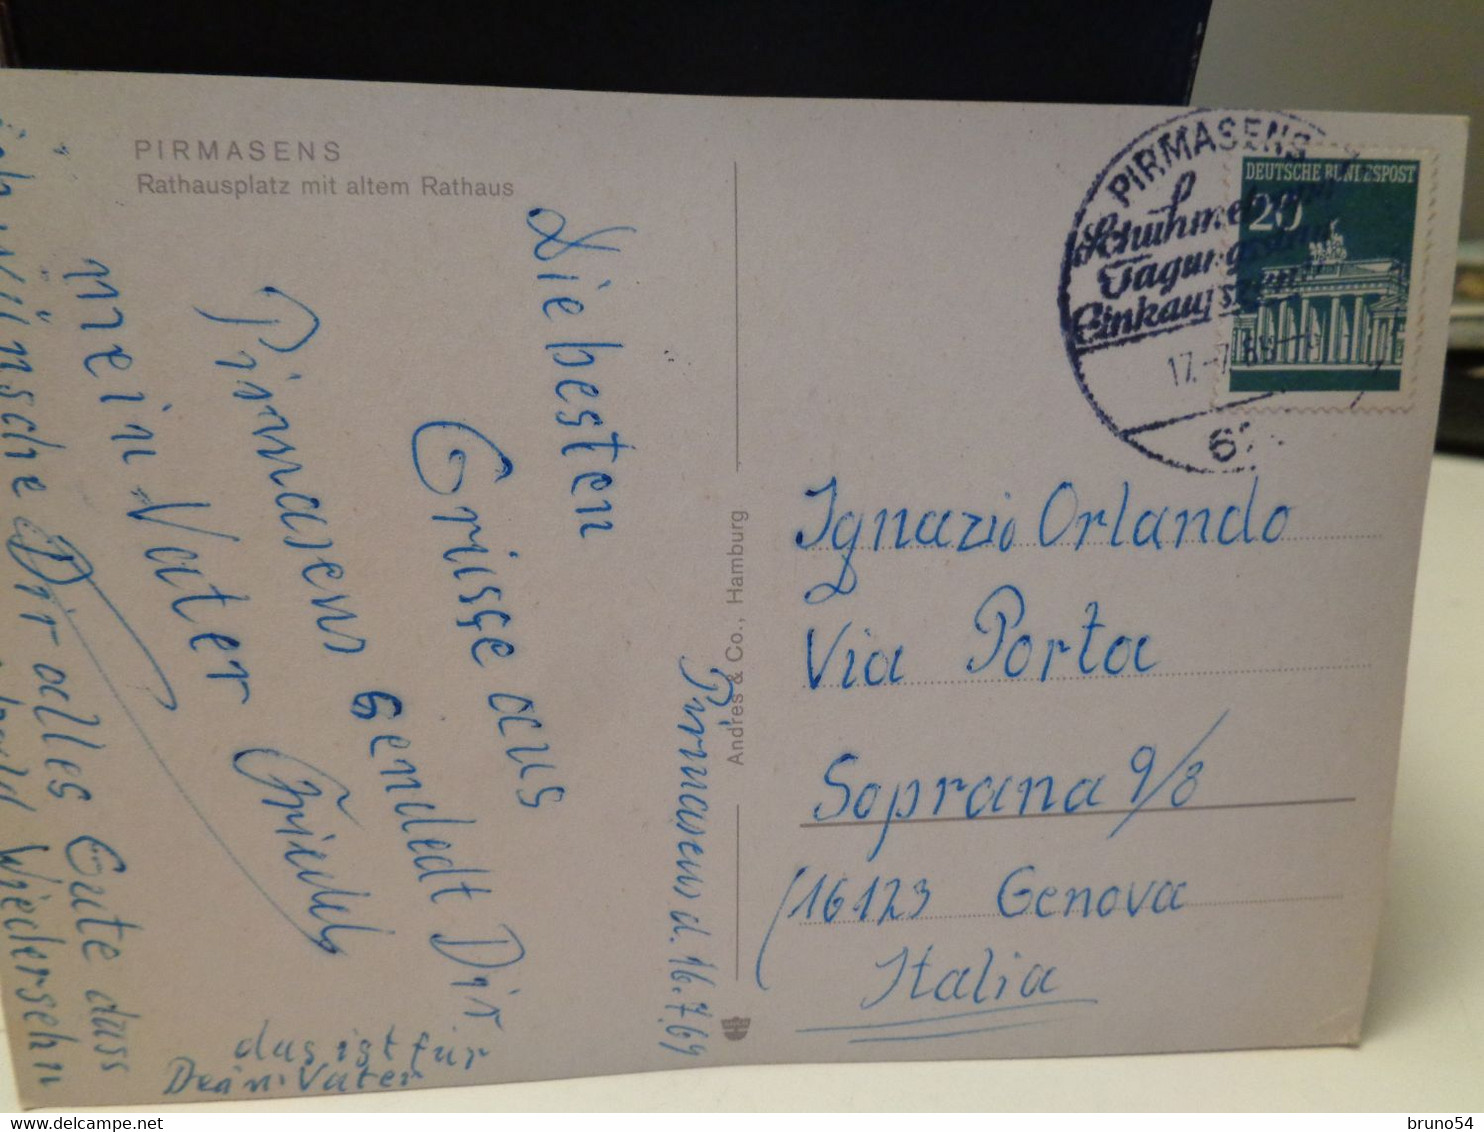 PIRMASENS
Rathausplatz mit altem Rathaus
Pirmasens d. 16.7.69
Die besten
Grüsse aus
Pirmasens sendedt Dir
mein Vater
ich wünsche Dir alles Gute dass
Wiedersehn
das ist für
Dein Vater
Andres & Co., Hamburg
PIRMASENS
Tagungs
Einkaufs
17.-7.69
DEUTSCHE BUNDESPOST
20
Ignazio Orlando
Via Porta
Soprana 9/8
(16123 Genova
Italia
delcampe.net
bruno54